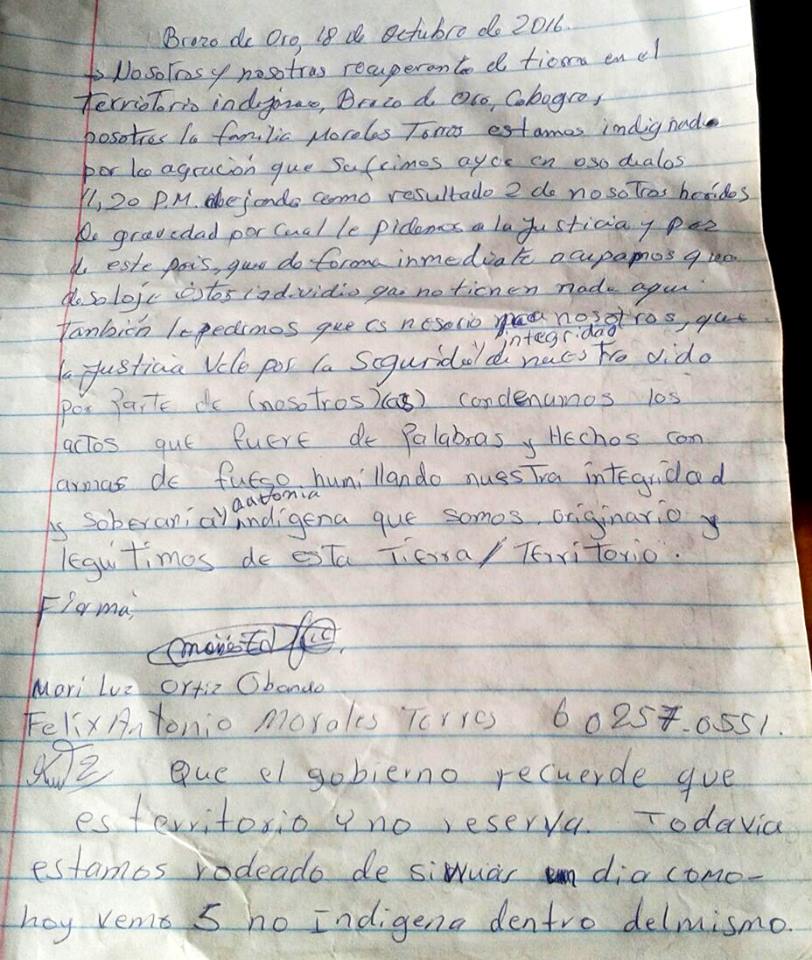 Brazo de Oro, 18 de Octubre de 2016.
→ Nosotros y nosotras recuperante el tierra en el
Terriotorio indijinao, Brazo de Oro, Cabagra,
nosotros la familia Morales Torres estamos indignado
por la agrución que Sufrimos ayce en oso dialos
11,20 P.M. dejando como resultado 2 de nosotros heridos
de gravedad por cual le pidemos a la justicia y paz
de este pais, que do forma inmediate ocupamos que
desaloje éstos individio que no tienen nada aqui.
También le pedimos que es nesorio para nosotros, que
la justicia Vele por la Seguridad y integridad de nuestra vida
por Parte de (nosotros)(as) condenamos los
actos que fuere de Palabras y Hechos con
armas de fuego humillando nuestra integridad
y soberanía y autonia indígena que somos originario y
legítimos de esta Tierra / Territorio.
Firma,
Mari Luz Ortiz Obando
Felix Antonio Morales Torres 6 0257-0551.
Que el gobierno recuerde que
es territorio y no reserva. Todavia
estamos rodeado de sikuas un dia como-
hoy vemo 5 no Indigena dentro delmismo.